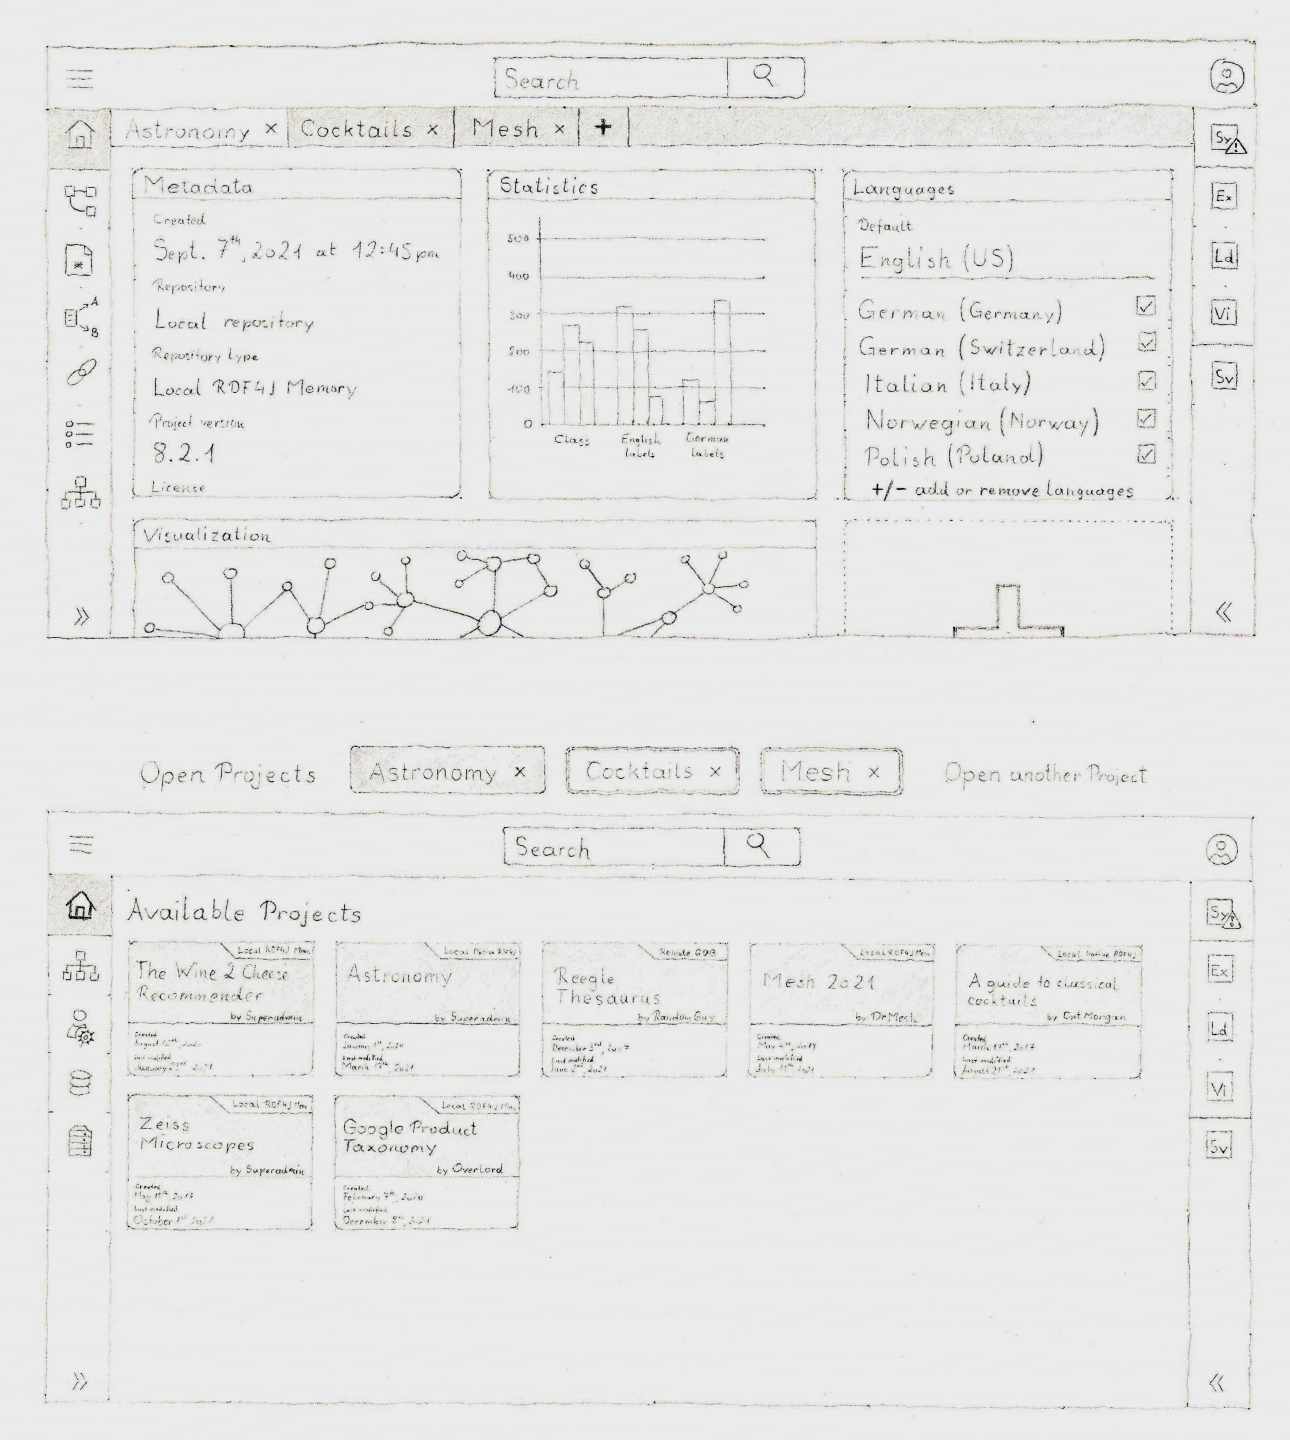 Search
Astronomy × Cocktails × Mesh × +
Sy
Ex
Ld
Vi
Sv
A
B
Metadata
Created
Sept. 7th, 2021 at 12:45pm
Repository
Local repository
Repository type
Local RDF4J Memory
Project version
8.2.1
License
Statistics
500
400
300
200
100
0
Class English labels German labels
Languages
Default
English (US)
German (Germany)
German (Switzerland)
Italian (Italy)
Norwegian (Norway)
Polish (Poland)
+/- add or remove languages
Visualization
Open Projects Astronomy × Cocktails × Mesh × Open another Project
Search
Sy
Ex
Ld
Vi
Sv
Available Projects
Local RDF4J Mem
The Wine & Cheese
Recommender
by Superadmin
Created
Last modified
Local
Astronomy
by Superadmin
Created
Last modified
Remote GDB
Reegle
Thesaurus
by Random Guy
Created
Last modified
Local RDF4J Mem
Mesh 2021
by DrMesh
Created
Last modified
Local Native RDF4J
A guide to classical
cocktails
by Cpt Morgan
Created
Last modified
Local RDF4J Mem
Zeiss
Microscopes
by Superadmin
Created
Last modified
October 1st 2021
Local RDF4J Mem
Google Product
Taxonomy
by Overlord
Created
February 7th, 2020
Last modified
December 8th, 2021